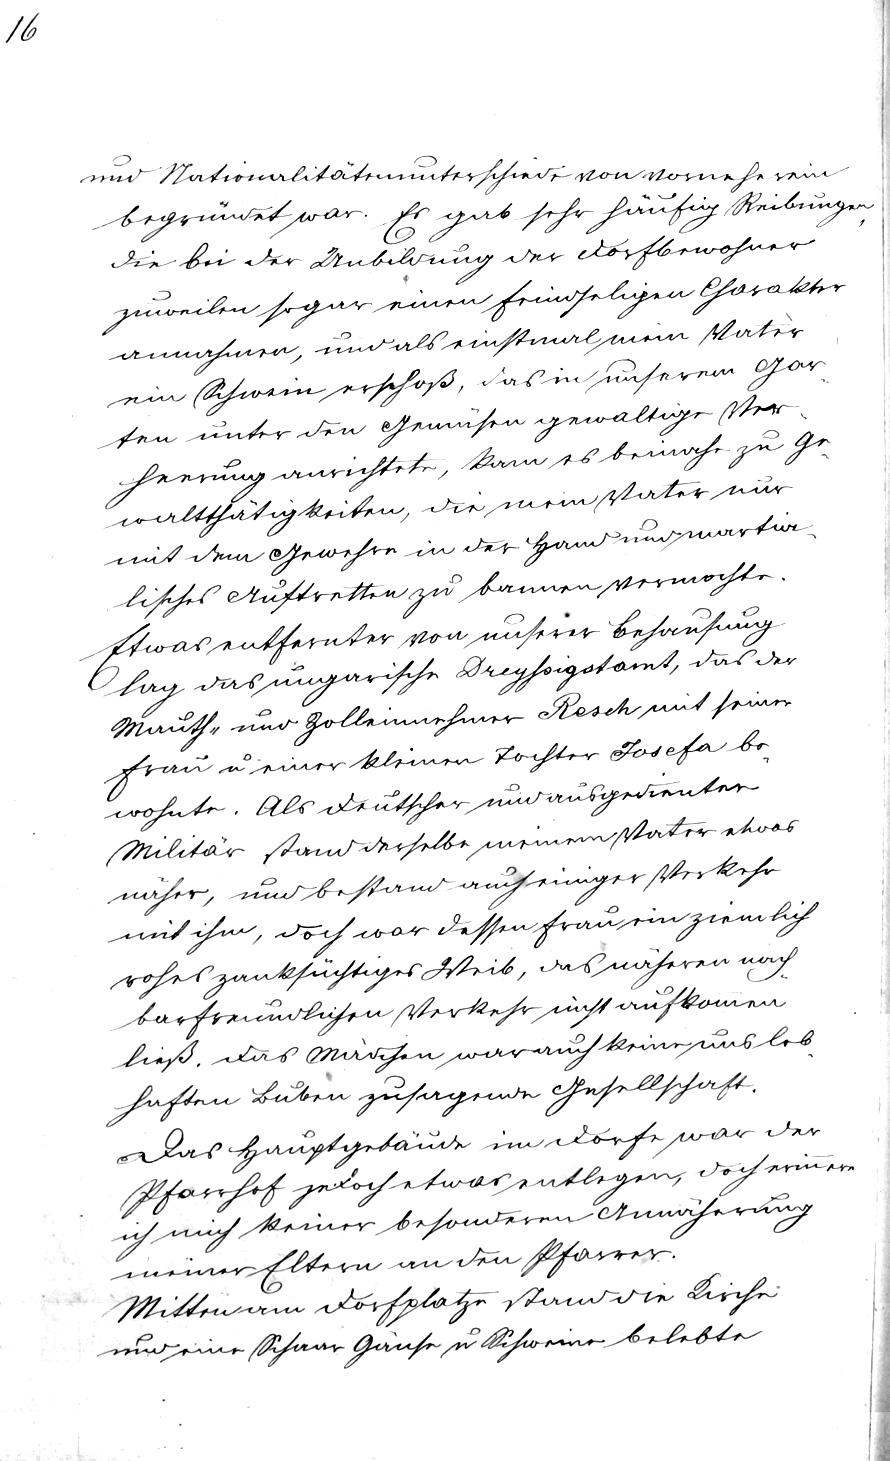 16
und Nationalitätenunterschiede von vorneherein
begründet war. Es gab sehr häufig Reibungen,
die bei der Unbildung der Dorfbewohner
zuweilen sogar einen feindseligen Charakter
annahmen, und als einstmal mein Vater
ein Schwein erschoß, das in unserem Gar-
ten unter den Gemüsen gewaltige Ver-
heerung anrichtete, kam es beinahe zu Ge-
waltthätigkeiten, die mein Vater nur
mit dem Gewehre in der Hand und martia-
lisches Auftretten zu bannen vermochte.
Etwas entfernter von unserer Behausung
lag das ungarische Dreyßigstamt, das der
Mauth- und Zolleinnehmer Resch mit seiner
Frau u einer kleinen Tochter Josefa be-
wohnte. Als Deutscher und ausgedienter
Militär stand derselbe meinem Vater etwas
näher, und bestand auch einiger Verkehr
mit ihm, doch war dessen Frau ein ziemlich
rohes zanksüchtiges Weib, das näheren nach-
barfreundlichen Verkehr nicht aufkommen
ließ. Das Mädchen war auch keine uns leb-
haften Buben zusagende Gesellschaft.
Das Hauptgebäude im Dorfe war der
Pfarrhof jedoch etwas entlegen, doch erinnere
ich mich keiner besonderen Annäherung
meiner Eltern an den Pfarrer.
Mitten am Dorfplatze stand die Kirche
und eine Schaar Gänse u Schweine belebte